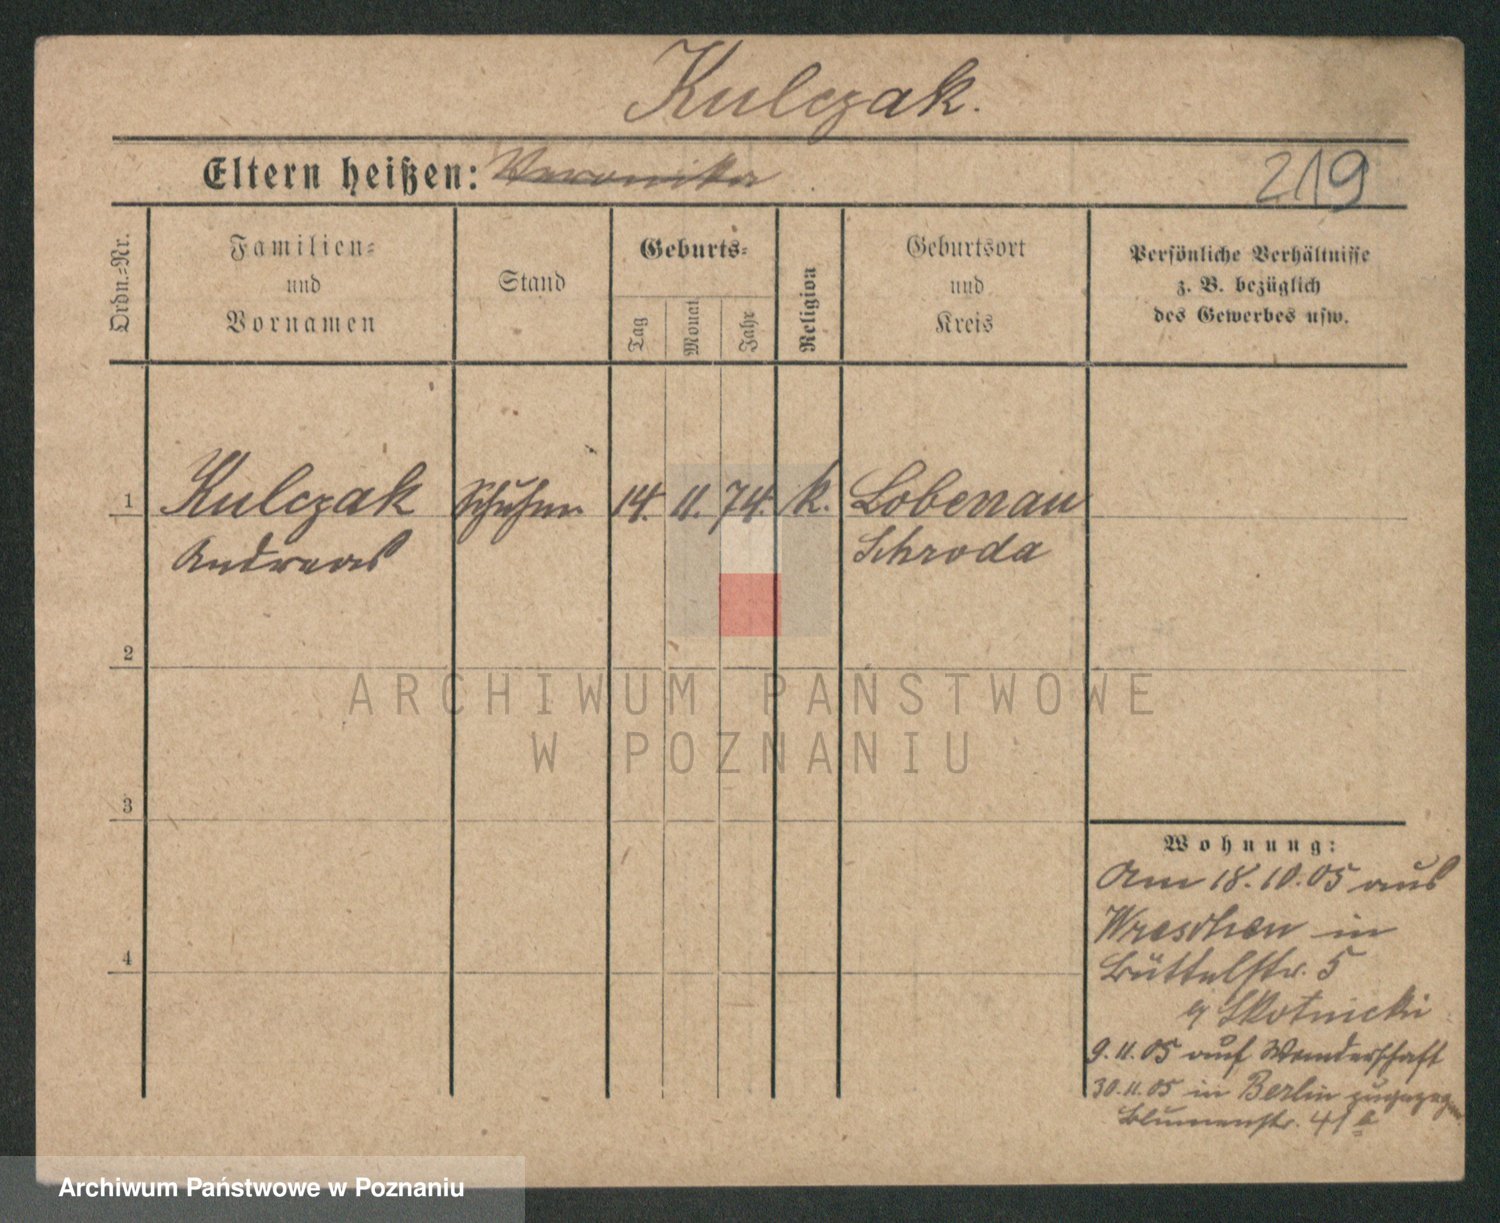 Kulczak.
Eltern heißen: Veronika
219
Ordn.-Nr.
Familien-
und
Vornamen
Stand
Geburts-
Tag
Monat
Jahr
Religion
Geburtsort
und
Kreis
Persönliche Verhältnisse
z. B. bezüglich
des Gewerbes usw.
1 Kulczak Schuhm. 14. 11. 74. k. Lobenau
Andreas Schroda
2
3
4
Wohnung:
Am 18.10.05 aus
Wreschen in
Büttelstr. 5
Skotnicki
9.11.05 auf Wanderschaft
30.11.05 in Berlin zugezogen
Blumenstr. 41
ARCHIWUM PAŃSTWOWE
W POZNANIU
Archiwum Państwowe w Poznaniu